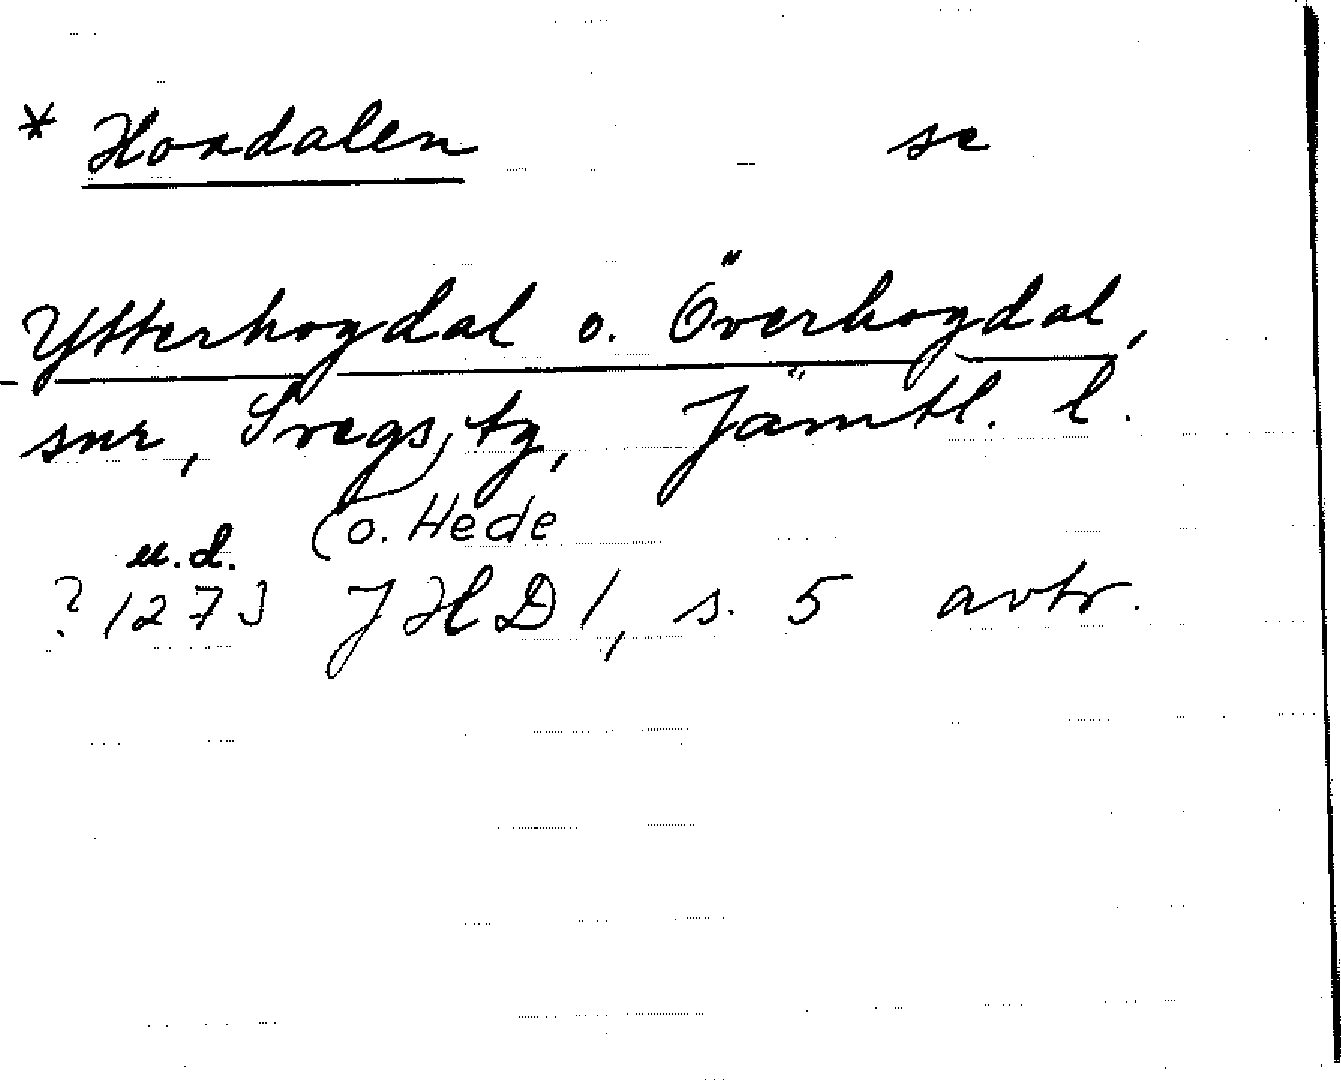 * Hoadalen se
Ytterhogdal o. Överhogdal,
snr, Svegs, tg, Jämtl. l.
(o. Hede
u.d.
? 1273 JHD 1, s. 5 avtr.